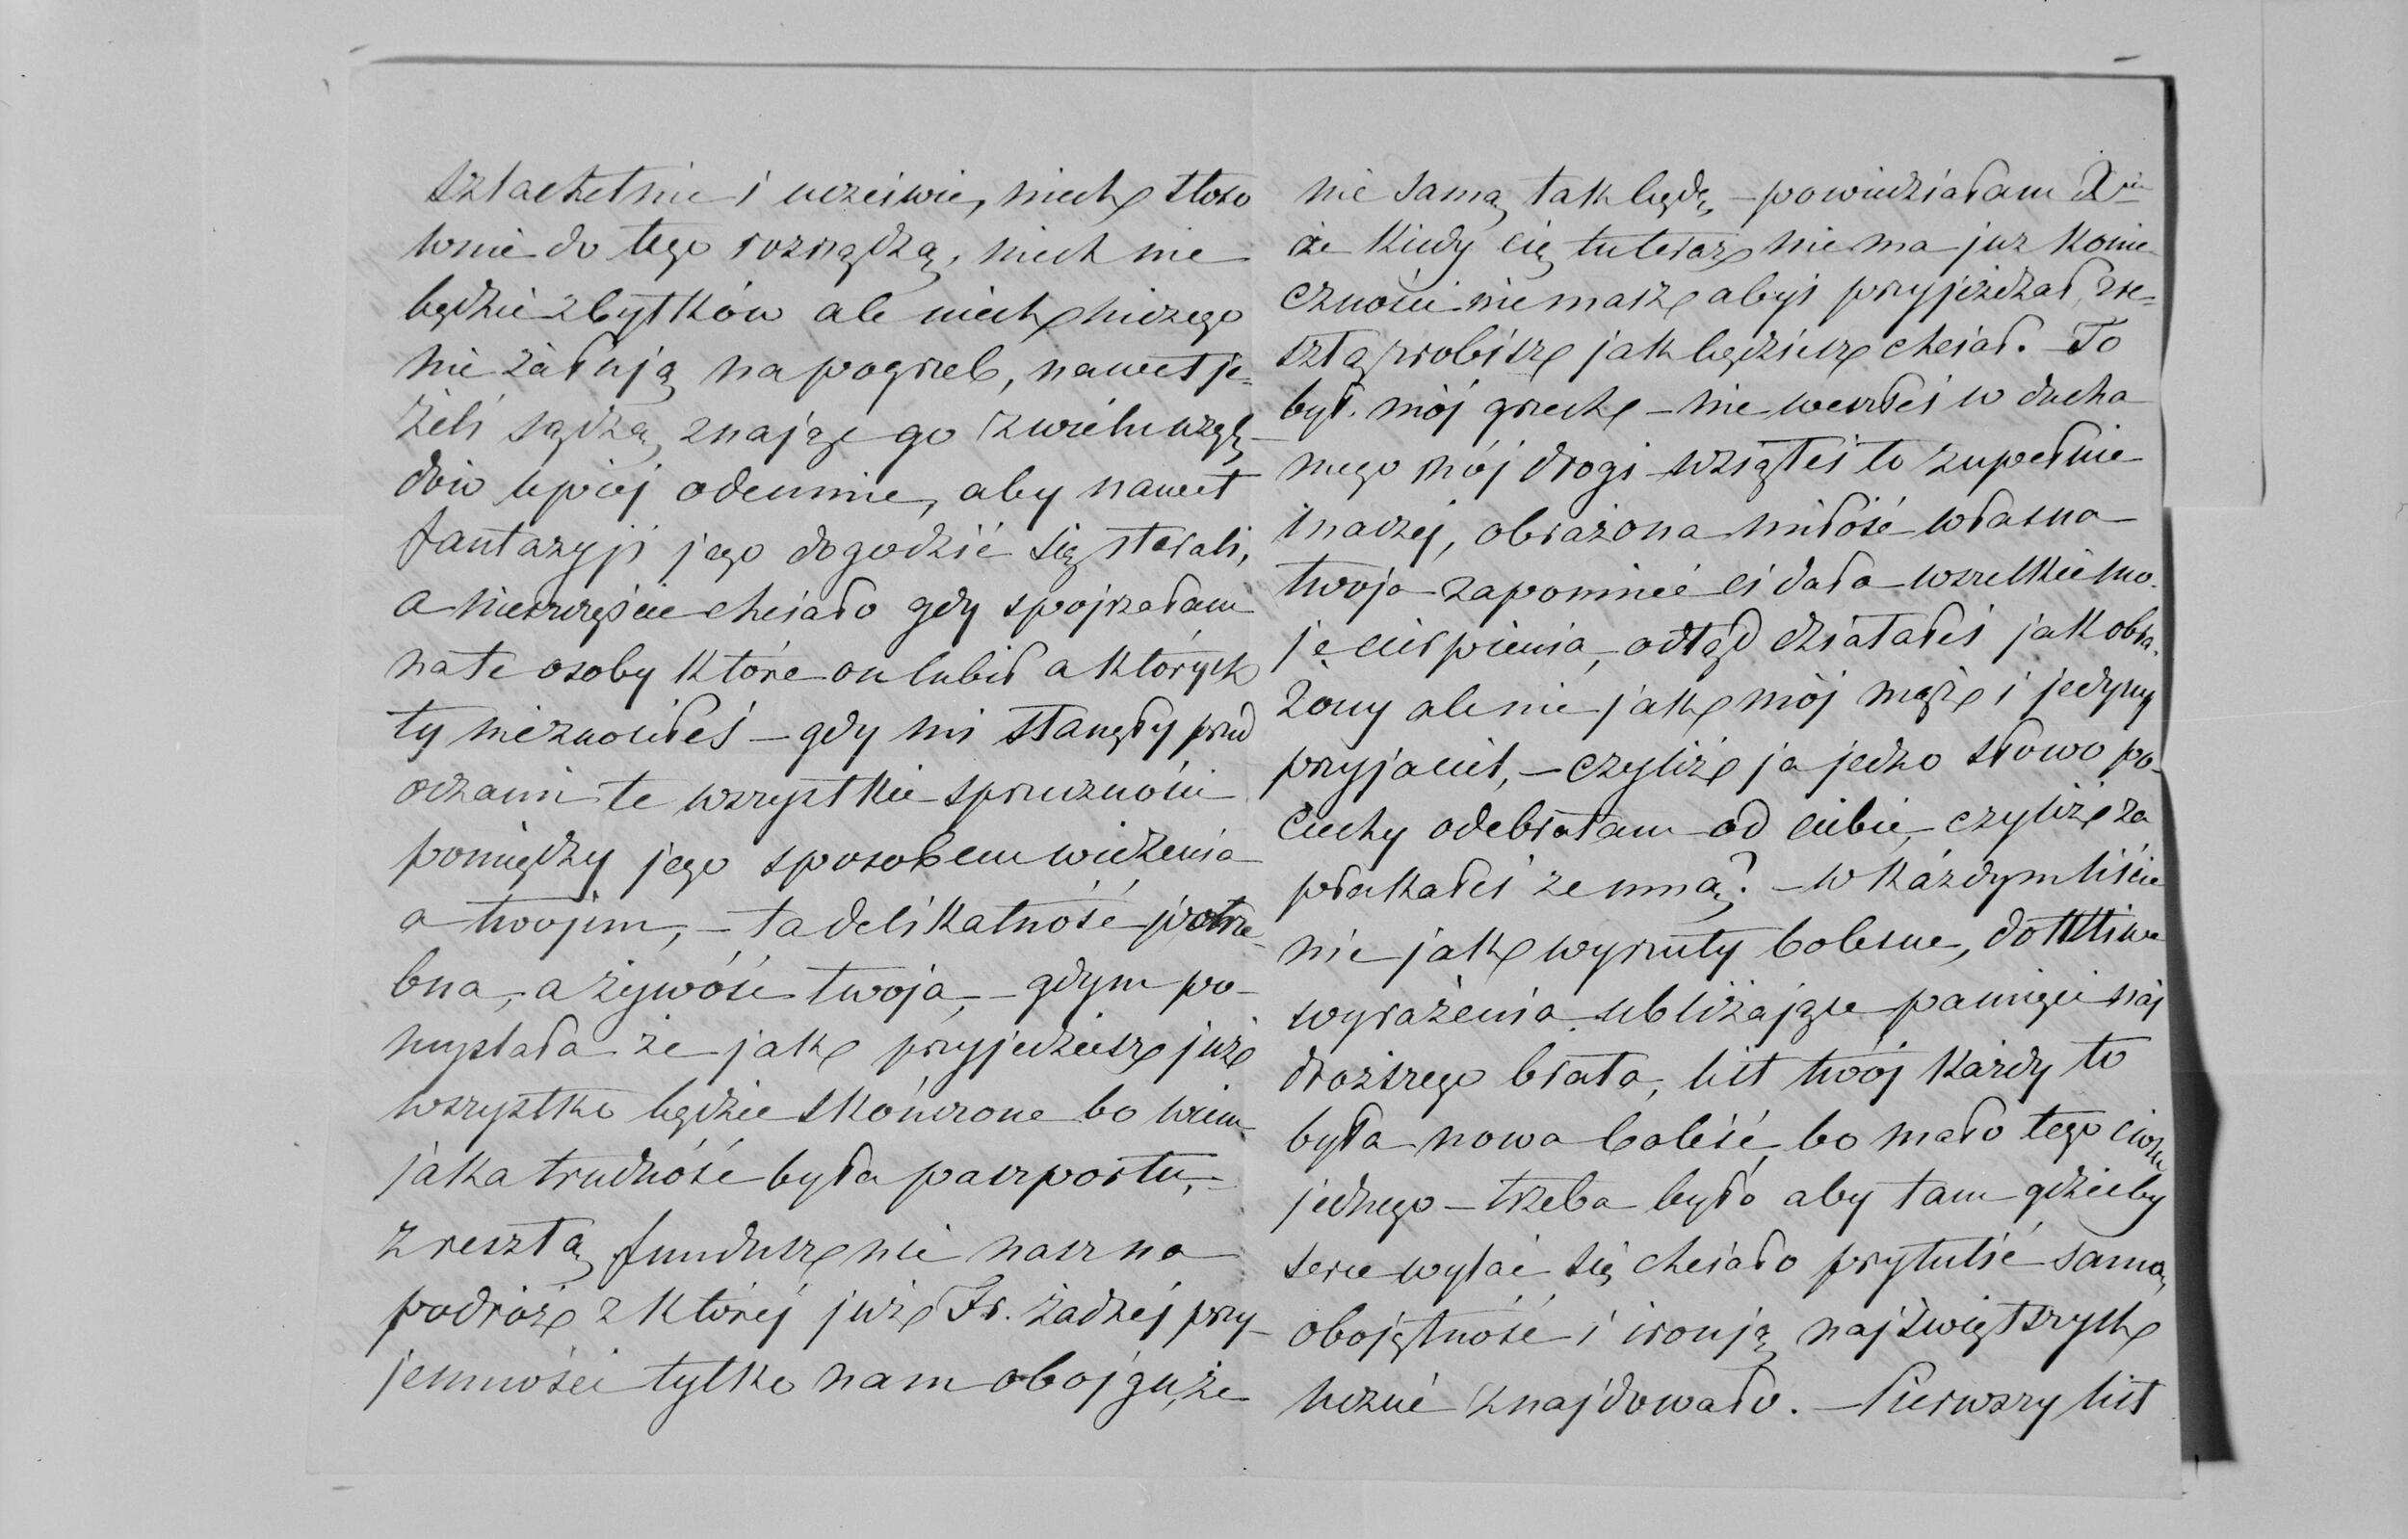 szlachetnie i uczciwie, niech stoso
wnie do tego rozrządzą, niech nie
będzie zbytków ale niech niczego
nie żałują na pogrzeb, nawet je=
żeli sądzą znając go z wielu wzglę
dów lepiej odemnie, aby nawet
fantazyji jego dogodzić się starali,
a nieszczęście chciało gdy spojrzałam
na te osoby które on lubił a których
ty nieznosiłeś – gdy mi stanęły przed
oczami te wszystkie sprzeczności
pomiędzy jego sposobem widzenia
a twojim, – ta delikatność potrze-
bna, a żywość twoja, – gdym po-
myslała że jak przyjedziesz już
wszystko będzie skończone bo wiem
jaka trudność była paszportu, –
zresztą fundusz nie nasz na
podróż z której już Fr. żadnéj przy-
jemności tylko nam obojgu, że
nie samą tak będę, – powiedziałam
że kiedy cię tu teraz niema już konie-
czności niemasz abyś przyjeżdżał, zre=
sztą zrobisz jak będziesz chciał. To
był mój grzech – nie weszłeś w ducha
mego mój drogi wziąłeś to zupełnie
inaczej, obrażona miłość własna
twoja zapomnieć ci dała wszelkie mo-
je cierpienia, odtąd działałeś jak obra-
żony ale nie jak mój mąż i jedyny
przyjaciel, – czyliż ja jedno słowo po-
ciechy odebrałam od ciebie, czyliż za
płakałeś ze mną? – w każdym liście
nie jak wyrzuty bolesne, dotkliwe
wyrażenia ubliżające pamięci naj
droższego brata, list twój każdy to
była nowa boleść, bo mało tego ciosu
jednego – trzeba było aby tam gdzieby
serce wylać się chciało przytulić samą
obojętność i ironją najświętszych
uczuć znajdowało. – Pierwszy list